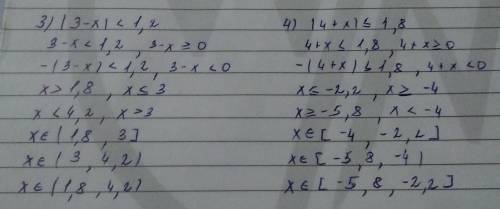 3) |3-x| < 1,2
3-x < 1,2 , 3-x ≥ 0
-(3-x) < 1,2 , 3-x < 0
x > 1,8 , x ≤ 3
x < 4,2 , x > 3
x ∈ (1,8 , 3]
x ∈ (3 , 4,2)
x ∈ (1,8 , 4,2)
4) |4+x| ≤ 1,8
4+x ≤ 1,8 , 4+x ≥ 0
-(4+x) ≤ 1,8 , 4+x < 0
x ≤ -2,2 , x ≥ -4
x ≥ -5,8 , x < -4
x ∈ [-4 , -2,2]
x ∈ [-5,8 , -4)
x ∈ [-5,8 , -2,2]